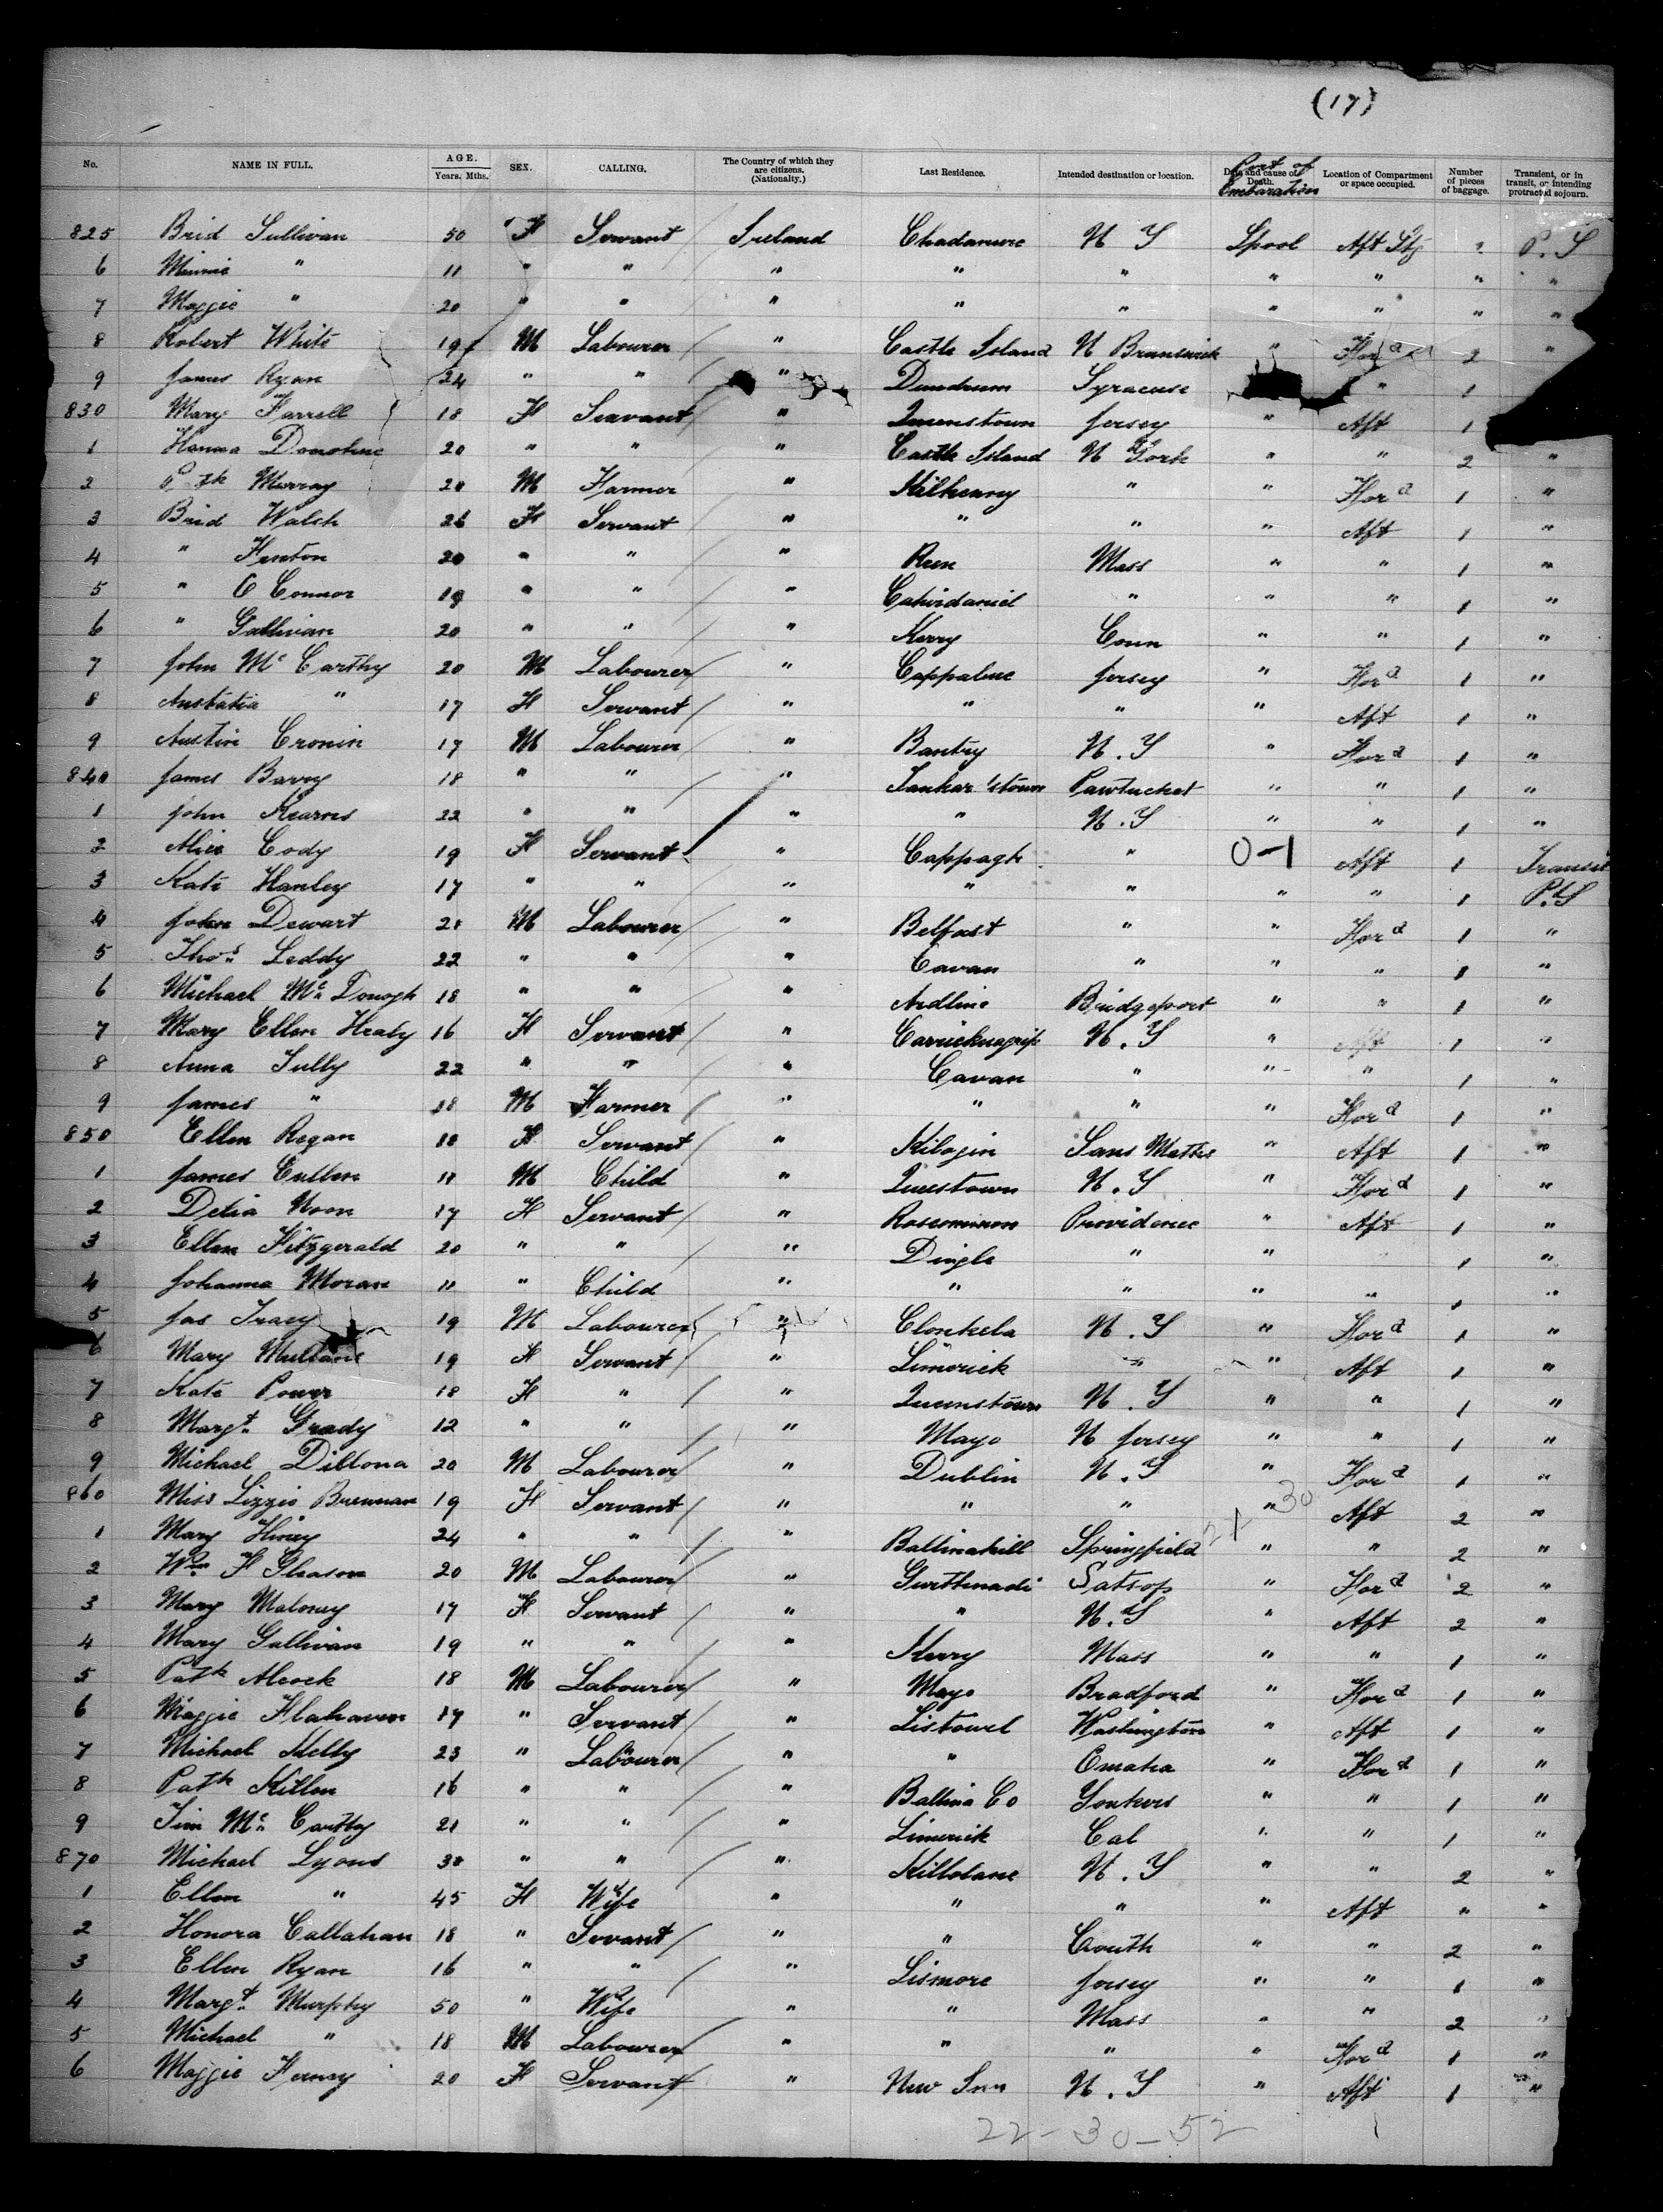 (17)
No. NAME IN FULL. AGE. Years. Mths. SEX. CALLING. The Country of which they are citizens. (Nationality.) Last Residence. Intended destination or location. Date and cause of Death. Port of Embaration Location of Compartment or space occupied. Number of pieces of baggage. Transient, or in transit, or intending protracted sojourn.
825 Brid Sullivan 50 F Servant Ireland N Y Lpool Aft Stg P. S
6 Minnie " 11 " " " " " " " " "
7 Maggie " 20 " " " " " " " " "
8 Robert White 19 M Labourer " Castle Island N Brunswick " For'd 2 "
9 James Ryan 24 " " " Dundrum Syracuse " 1
830 Mary Farrell 18 F Servant " Queenstown Jersey " Aft 1
1 Hanna Donohue 20 " " " Castle Island N York " " 2 "
2 Patk Murray 20 M Farmer " Kilkenny " " For'd 1 "
3 Brid Walsh 26 F Servant " " " " Aft 1 "
4 " Fenton 20 " " " Mass " " 1 "
5 " O Connor 19 " " " Cahirdaniel " " " 1 "
6 " Gallivan 20 " " " Kerry Conn " " 1 "
7 John Mc Carthy 20 M Labourer " Jersey " For'd 1 "
8 Anstatia " 17 F Servant " " " " Aft 1 "
9 Austin Cronin 17 M Labourer " Bantry N. Y " For'd 1 "
840 James Barry 18 " " " Pawtucket " " 1 "
1 John Kearns 22 " " " " N. Y " " 1 "
2 Alice Cody 19 F Servant " Cappagh " 0-1 Aft 1 Transit
3 Kate Hanley 17 " " " " " " " 1 P. S
4 John Dewart 21 M Labourer " Belfast " " For'd 1 "
5 Thos Leddy 22 " " " Cavan " " " 1 "
6 Michael Mc Donogh 18 " " " Ardline Bridgeport " " 1 "
7 Mary Ellen Healy 16 F Servant " N. Y " Aft 1 "
8 Anna Tully 22 " " " Cavan " " " 1 "
9 James " 18 M Farmer " " " " For'd 1 "
850 Ellen Regan 18 F Servant " Sans Mattes " Aft 1 "
1 James Cullen 11 M Child " Queestown N. Y " For'd 1 "
2 Delia Noon 17 F Servant " Roscommon Providence " Aft 1 "
3 Ellen Fitzgerald 20 " " " Dingle " " 1 "
4 Johanna Moran 11 " Child " " " " " 1 "
5 Jas Tracy 19 M Labourer " Clonkela N. Y " For'd 1 "
6 Mary Mullane 19 F Servant " Limerick " " Aft 1 "
7 Kate Power 18 F " " Queenstown N. Y " " 1 "
8 Margt Grady 12 " " " Mayo N Jersey " " 1 "
9 Michael Dillona 20 M Labourer " Dublin N. Y " For'd 1 "
860 Miss Lizzie Brennan 19 F Servant " " " " 30 Aft 2 "
1 Mary 24 " " " Ballinahill Springfield " " 2 "
2 Wm F Gleason 20 M Labourer " Gurthnadi Satsop " For'd 2 "
3 Mary Maloney 17 F Servant " " N. Y " Aft 2 "
4 Mary Gallivan 19 " " " Kerry Mass " " 1 "
5 Patk Alcock 18 M Labourer " Mayo Bradford " For'd 1 "
6 Maggie Flahaven 17 " Servant " Listowel Washington " Aft 1 "
7 Michael Kelly 23 " Labourer " " Omaha " For'd 1 "
8 Patk Killen 16 " " " Ballina Co Yonkers " " 1 "
9 Tim Mc Carthy 21 " " " Limerick Cal " " 1 "
870 Michael Lyons 30 " " " Killolane N. Y " " 2 "
1 Ellen " 45 F Wife " " " " Aft " "
2 Honora Callahan 18 " Servant " " " " 2 "
3 Ellen Ryan 16 " " " Lismore Jersey " " 1 "
4 Margt Murphy 50 " Wife " " Mass " " 2 "
5 Michael " 18 M Labourer " " " " For'd 1 "
6 Maggie 20 F Servant " New Inn N. Y " Aft 1 "
22-30-52